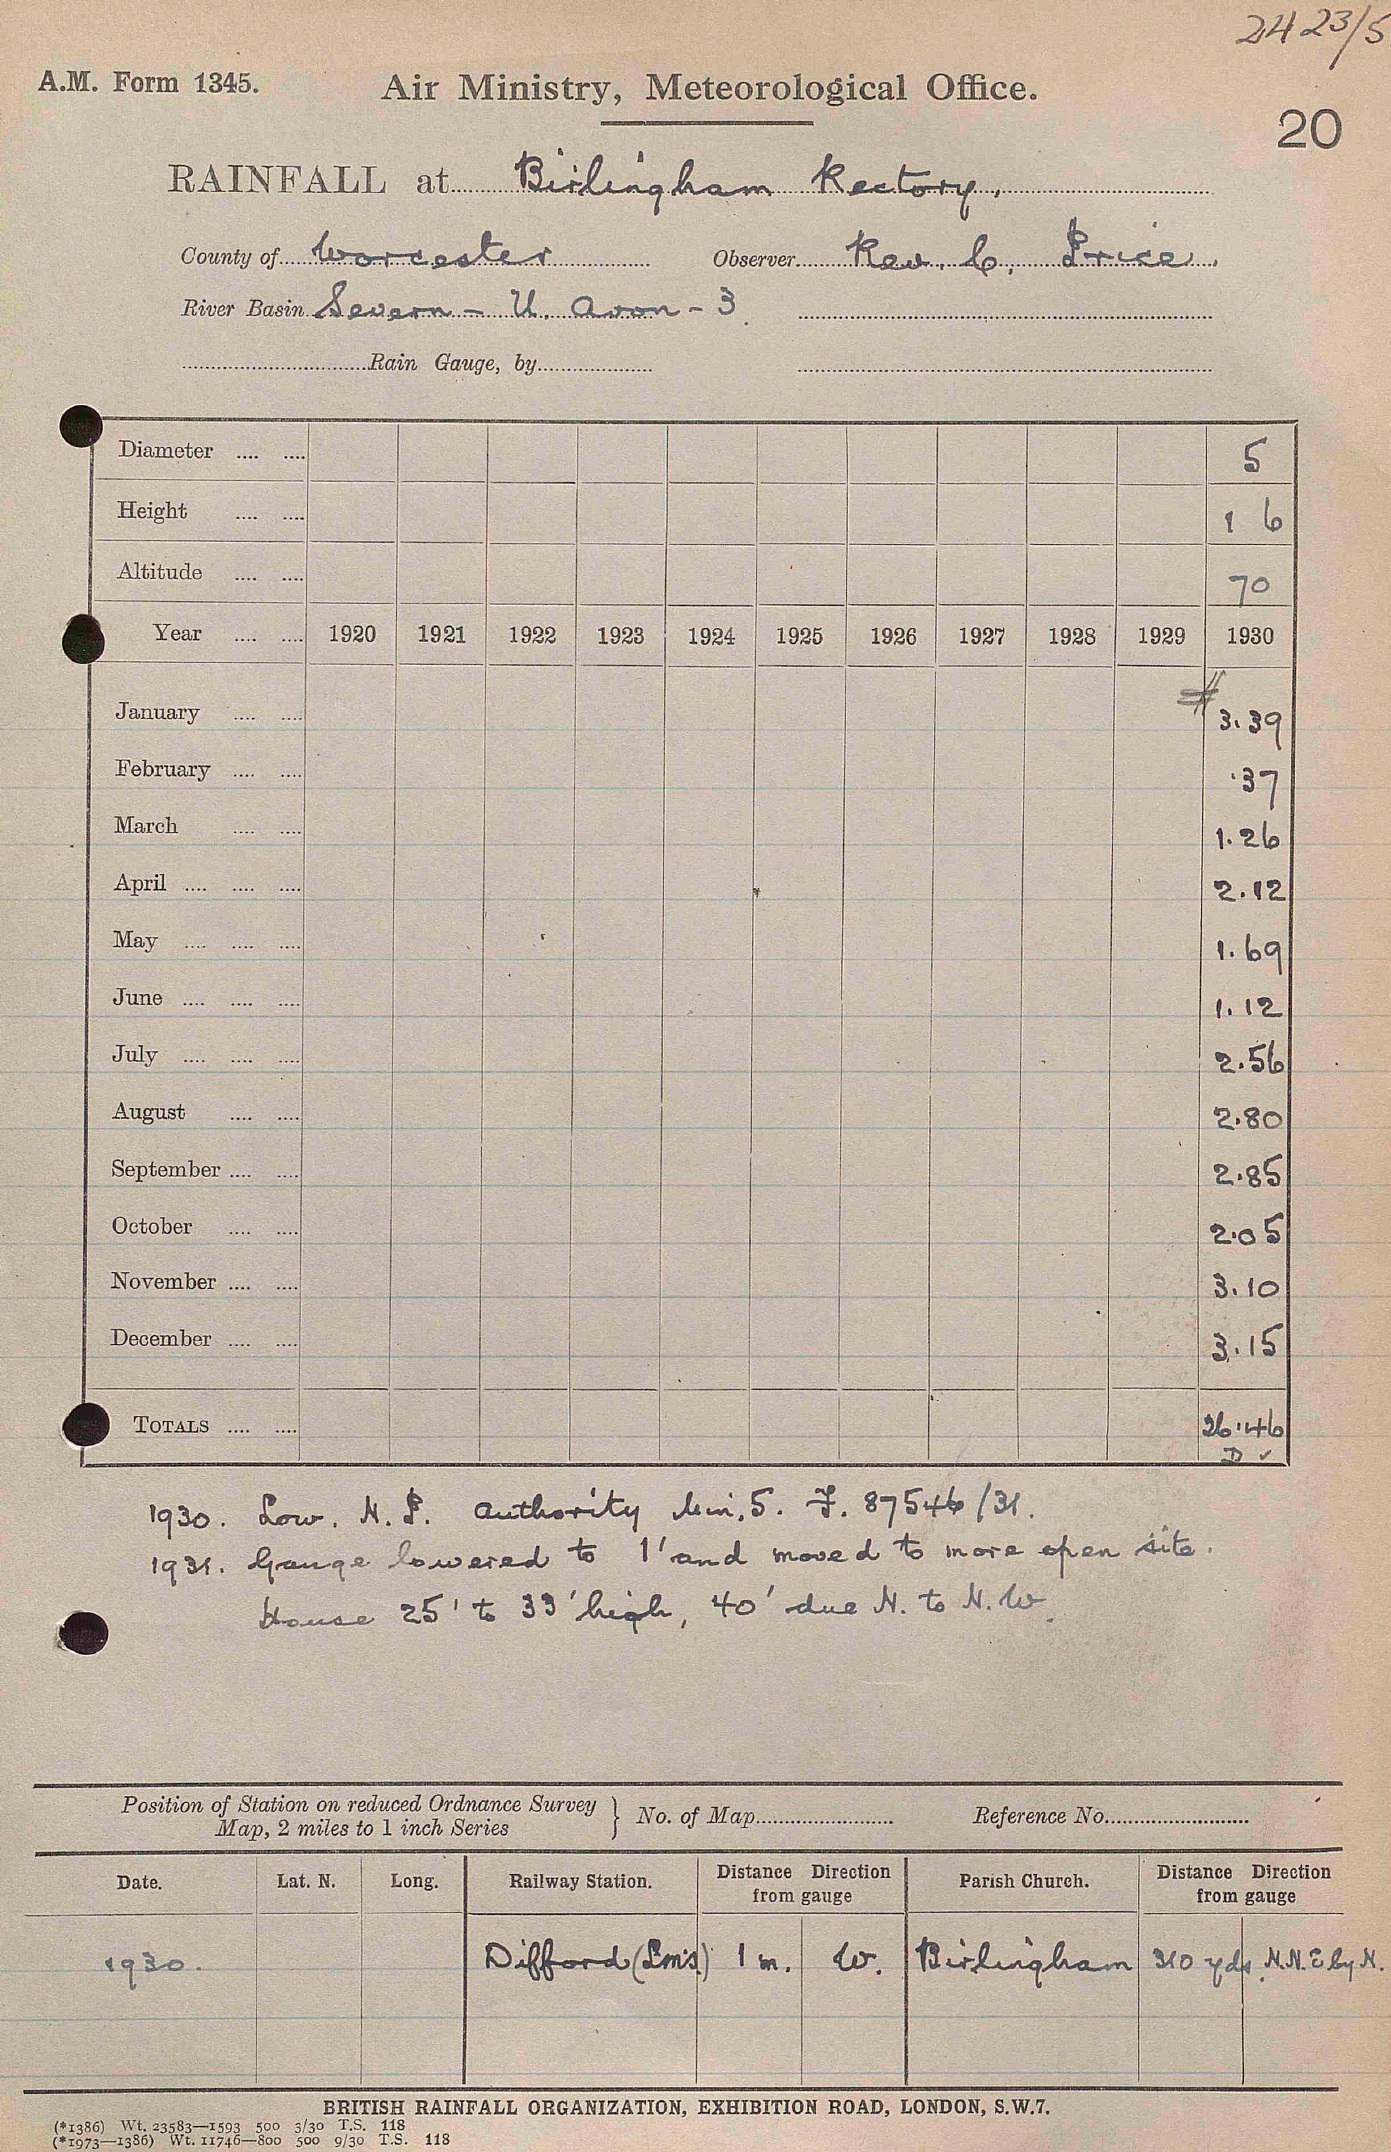 2423/5
A.M. Form 1345. Air Ministry, Meteorological Office.
20
RAINFALL at Birlingham Rectory,
County of Worcester Observer Rev. C. Price.
River Basin Severn - U. Avon - 3
Rain Gauge, by
Diameter .... .... 5
Height .... .... 1 6
Altitude .... .... 70
Year .... .... 1920 1921 1922 1923 1924 1925 1926 1927 1928 1929 1930
January .... .... # 3.39
February .... .... .37
March .... .... 1.26
April .... .... .... 2.12
May .... .... .... 1.69
June .... .... .... 1.12
July .... .... .... 2.56
August .... .... 2.80
September .... .... 2.85
October .... .... 2.05
November .... .... 3.10
December .... .... 3.15
TOTALS .... .... 26.46
D ✓
1930. Low. N. P. Authority Min. 5. F. 87546/31.
1931. Gauge lowered to 1' and moved to more open site.
House 25' to 33' high, 40' due N. to N.W.
Position of Station on reduced Ordnance Survey Map, 2 miles to 1 inch Series } No. of Map Reference No.
Date. Lat. N. Long. Railway Station. Distance Direction from gauge Parish Church. Distance Direction from gauge
1930. Difford (L.M.S.) 1 m. W. Birlingham 310 yds. N.N.E by N.
BRITISH RAINFALL ORGANIZATION, EXHIBITION ROAD, LONDON, S.W.7.
(*1386) Wt. 23583—1593 500 3/30 T.S. 118
(*1973—1386) Wt. 11746—800 500 9/30 T.S. 118